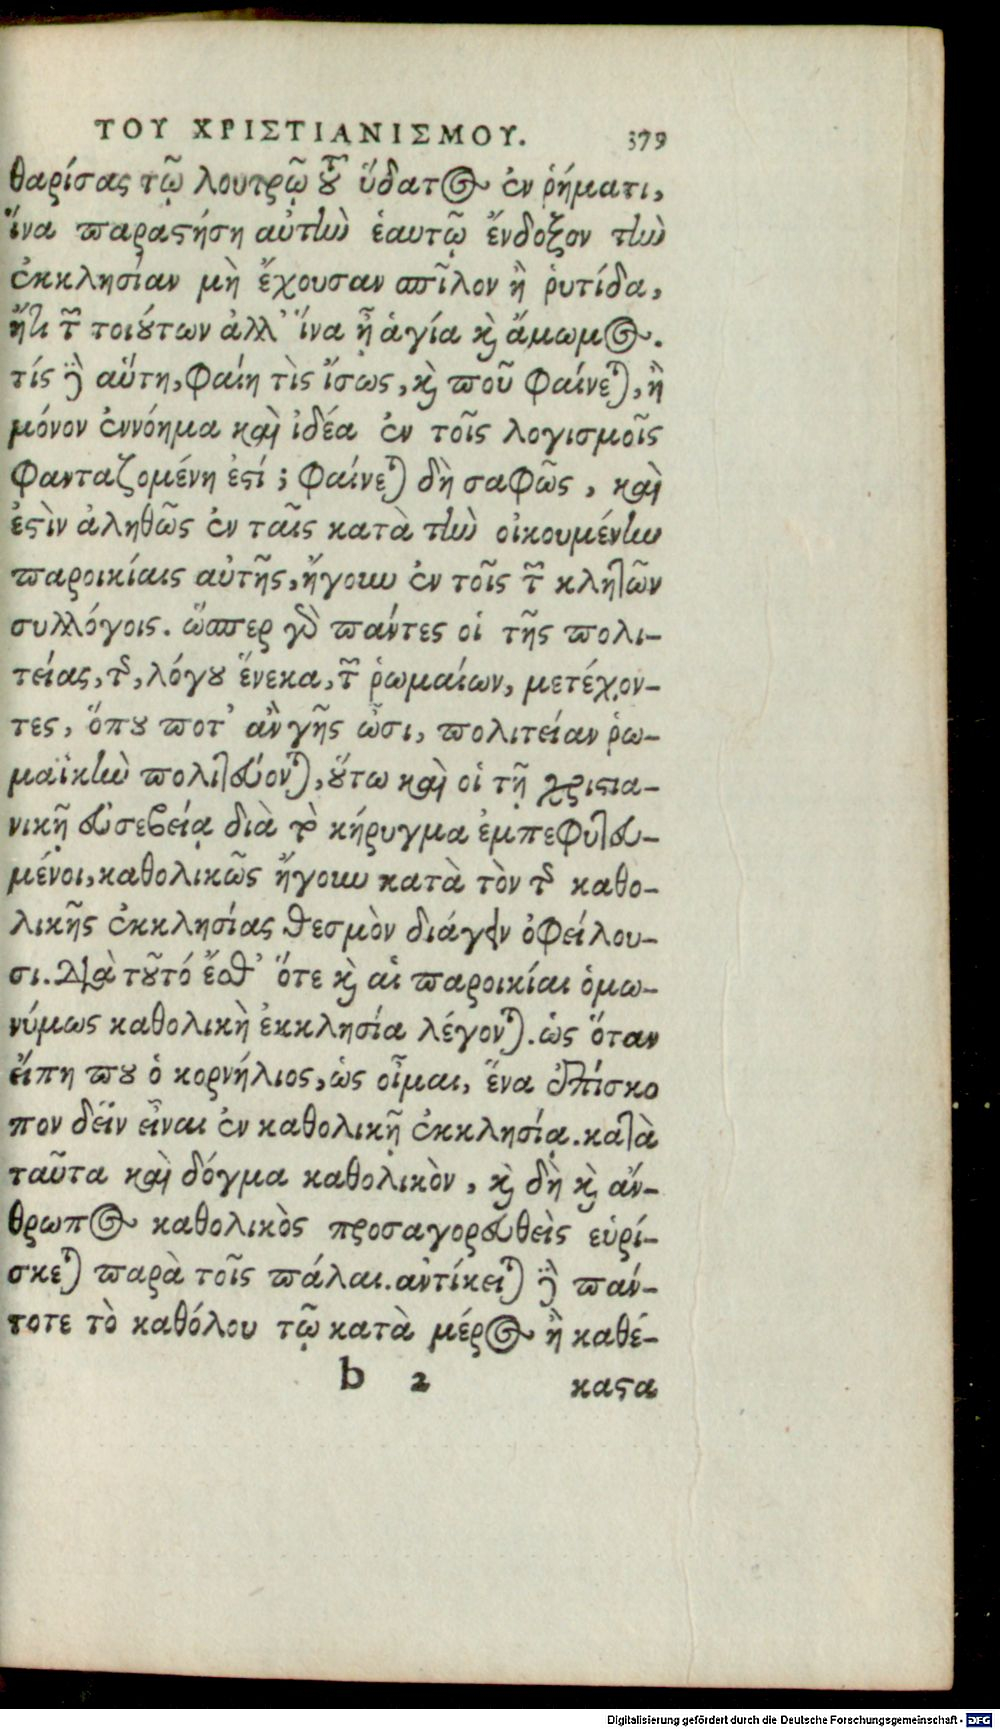 ΤΟΥ ΧΡΙΣΤΙΑΝΙΣΜΟΥ. 379
θαρίσας τῷ λουτρῷ τοῦ ὕδατος ἐν ῥήματι,
ἵνα παραστήσῃ αὐτὴν ἑαυτῷ ἔνδοξον τὴν
ἐκκλησίαν μὴ ἔχουσαν σπῖλον ἢ ῥυτίδα,
ἤ τι τῶν τοιούτων ἀλλ' ἵνα ᾖ ἁγία καὶ ἄμωμος.
τίς δὲ αὕτη, φαίη τὶς ἴσως, καὶ ποῦ φαίνεται, ἢ
μόνον ἐννόημα καὶ ἰδέα ἐν τοῖς λογισμοῖς
φανταζομένη ἐστί; φαίνεται δὴ σαφῶς, καὶ
ἐστὶν ἀληθῶς ἐν ταῖς κατὰ τὴν οἰκουμένην
παροικίαις αὐτῆς, ἤγουν ἐν τοῖς τῶν κλητῶν
συλλόγοις. ὥσπερ γὰρ πάντες οἱ τῆς πολι-
τείας, τῆς, λόγου ἕνεκα, τῶν ῥωμαίων, μετέχον-
τες, ὅπου ποτ' ἂν γῆς ὦσι, πολιτείαν ῥω-
μαϊκὴν πολιτεύονται, οὕτω καὶ οἱ τῇ χριστια-
νικῇ εὐσεβείᾳ διὰ τὸ κήρυγμα ἐμπεφυτευ-
μένοι, καθολικῶς ἤγουν κατὰ τὸν τῆς καθο-
λικῆς ἐκκλησίας θεσμὸν διάγειν ὀφείλου-
σι. Διὰ τοῦτό ἔσθ' ὅτε καὶ αἱ παροικίαι ὁμω-
νύμως καθολικὴ ἐκκλησία λέγονται. ὡς ὅταν
εἴπη που ὁ κορνήλιος, ὡς οἶμαι, ἕνα ἐπίσκο
πον δεῖν εἶναι ἐν καθολικῇ ἐκκλησίᾳ. κατὰ
ταῦτα καὶ δόγμα καθολικὸν, καὶ δὴ καὶ ἄν-
θρωπος καθολικὸς προσαγορευθεὶς εὑρί-
σκεται παρὰ τοῖς πάλαι. ἀντίκειται δὲ πάν-
τοτε τὸ καθόλου τῷ κατὰ μέρος ἢ καθέ-
b 2 καστα
Digitalisierung gefördert durch die Deutsche Forschungsgemeinschaft - DFG